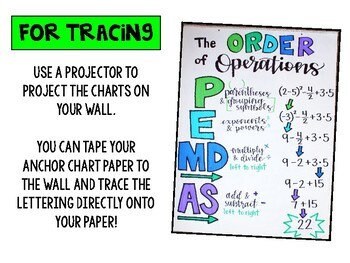 FOR TRACING
USE A PROJECTOR TO
PROJECT THE CHARTS ON
YOUR WALL.
YOU CAN TAPE YOUR
ANCHOR CHART PAPER TO
THE WALL AND TRACE THE
LETTERING DIRECTLY ONTO
YOUR PAPER!
The ORDER
of Operations
P parentheses
& grouping
symbols
(2-5)²-4/2+3·5
E exponents
& powers
(-3)²-4/2+3·5
9-4/2+3·5
MD multiply
& divide
left to right
9-2+3·5
9-2+15
AS add &
subtract
left to right
7+15
22